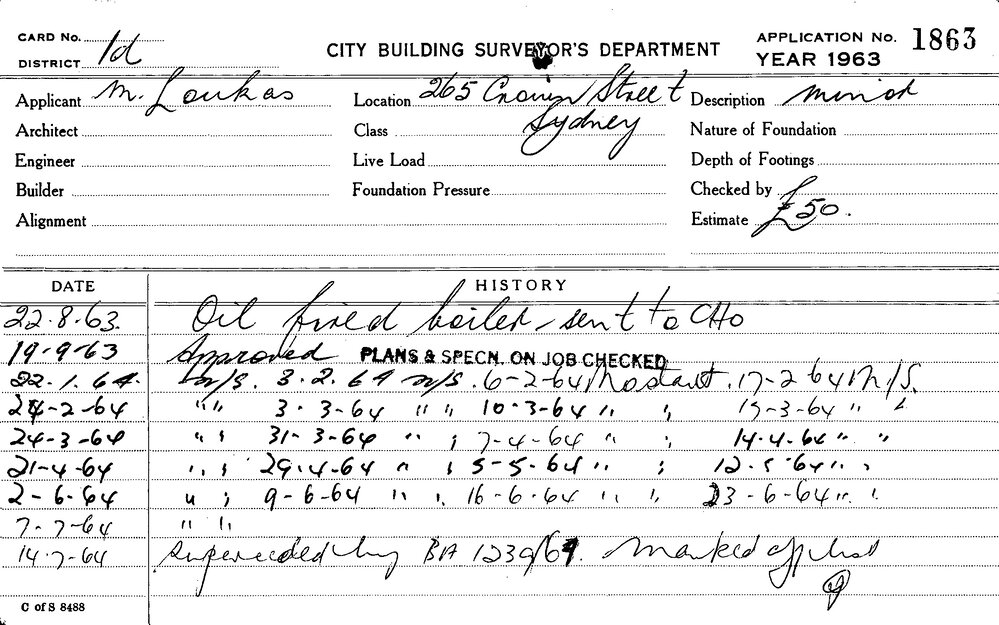 CARD No. 1d
DISTRICT
CITY BUILDING SURVEYOR'S DEPARTMENT
APPLICATION No. 1863
YEAR 1963
Applicant M. Loukas Location 265 Crown Street Description minor
Sydney
Architect Class Nature of Foundation
Engineer Live Load Depth of Footings
Builder Foundation Pressure Checked by
Alignment Estimate £50.
DATE HISTORY
22.8.63. Oil fired boiler - sent to CHO
19-9-63 Approved PLANS & SPECN. ON JOB CHECKED
22.1.64. n/s. 3.2.64 n/s. 6-2-64 No start. 17-2-64 N/S.
24-2-64 " " 3.3-64 " " 10-3-64 " " -3-64 " "
24-3-64 " " 31-3-64 " " 7-4-64 " " 14.4.64 " "
21-4-64 " " 29.4-64 " " 5-5-64 " " 12.5.64 " "
2-6-64 " " 9-6-64 " " 16-6-64 " " 23-6-64 " "
7-7-64 " "
14.7-64 Superceeded by BA 1239/64. Marked off list
C of S 8488